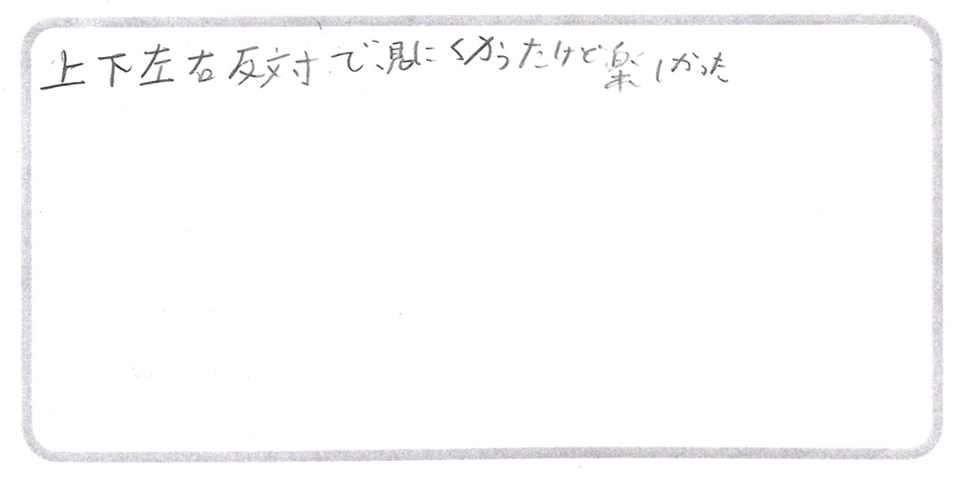 上下左右反対で、見にくかったけど楽しかった